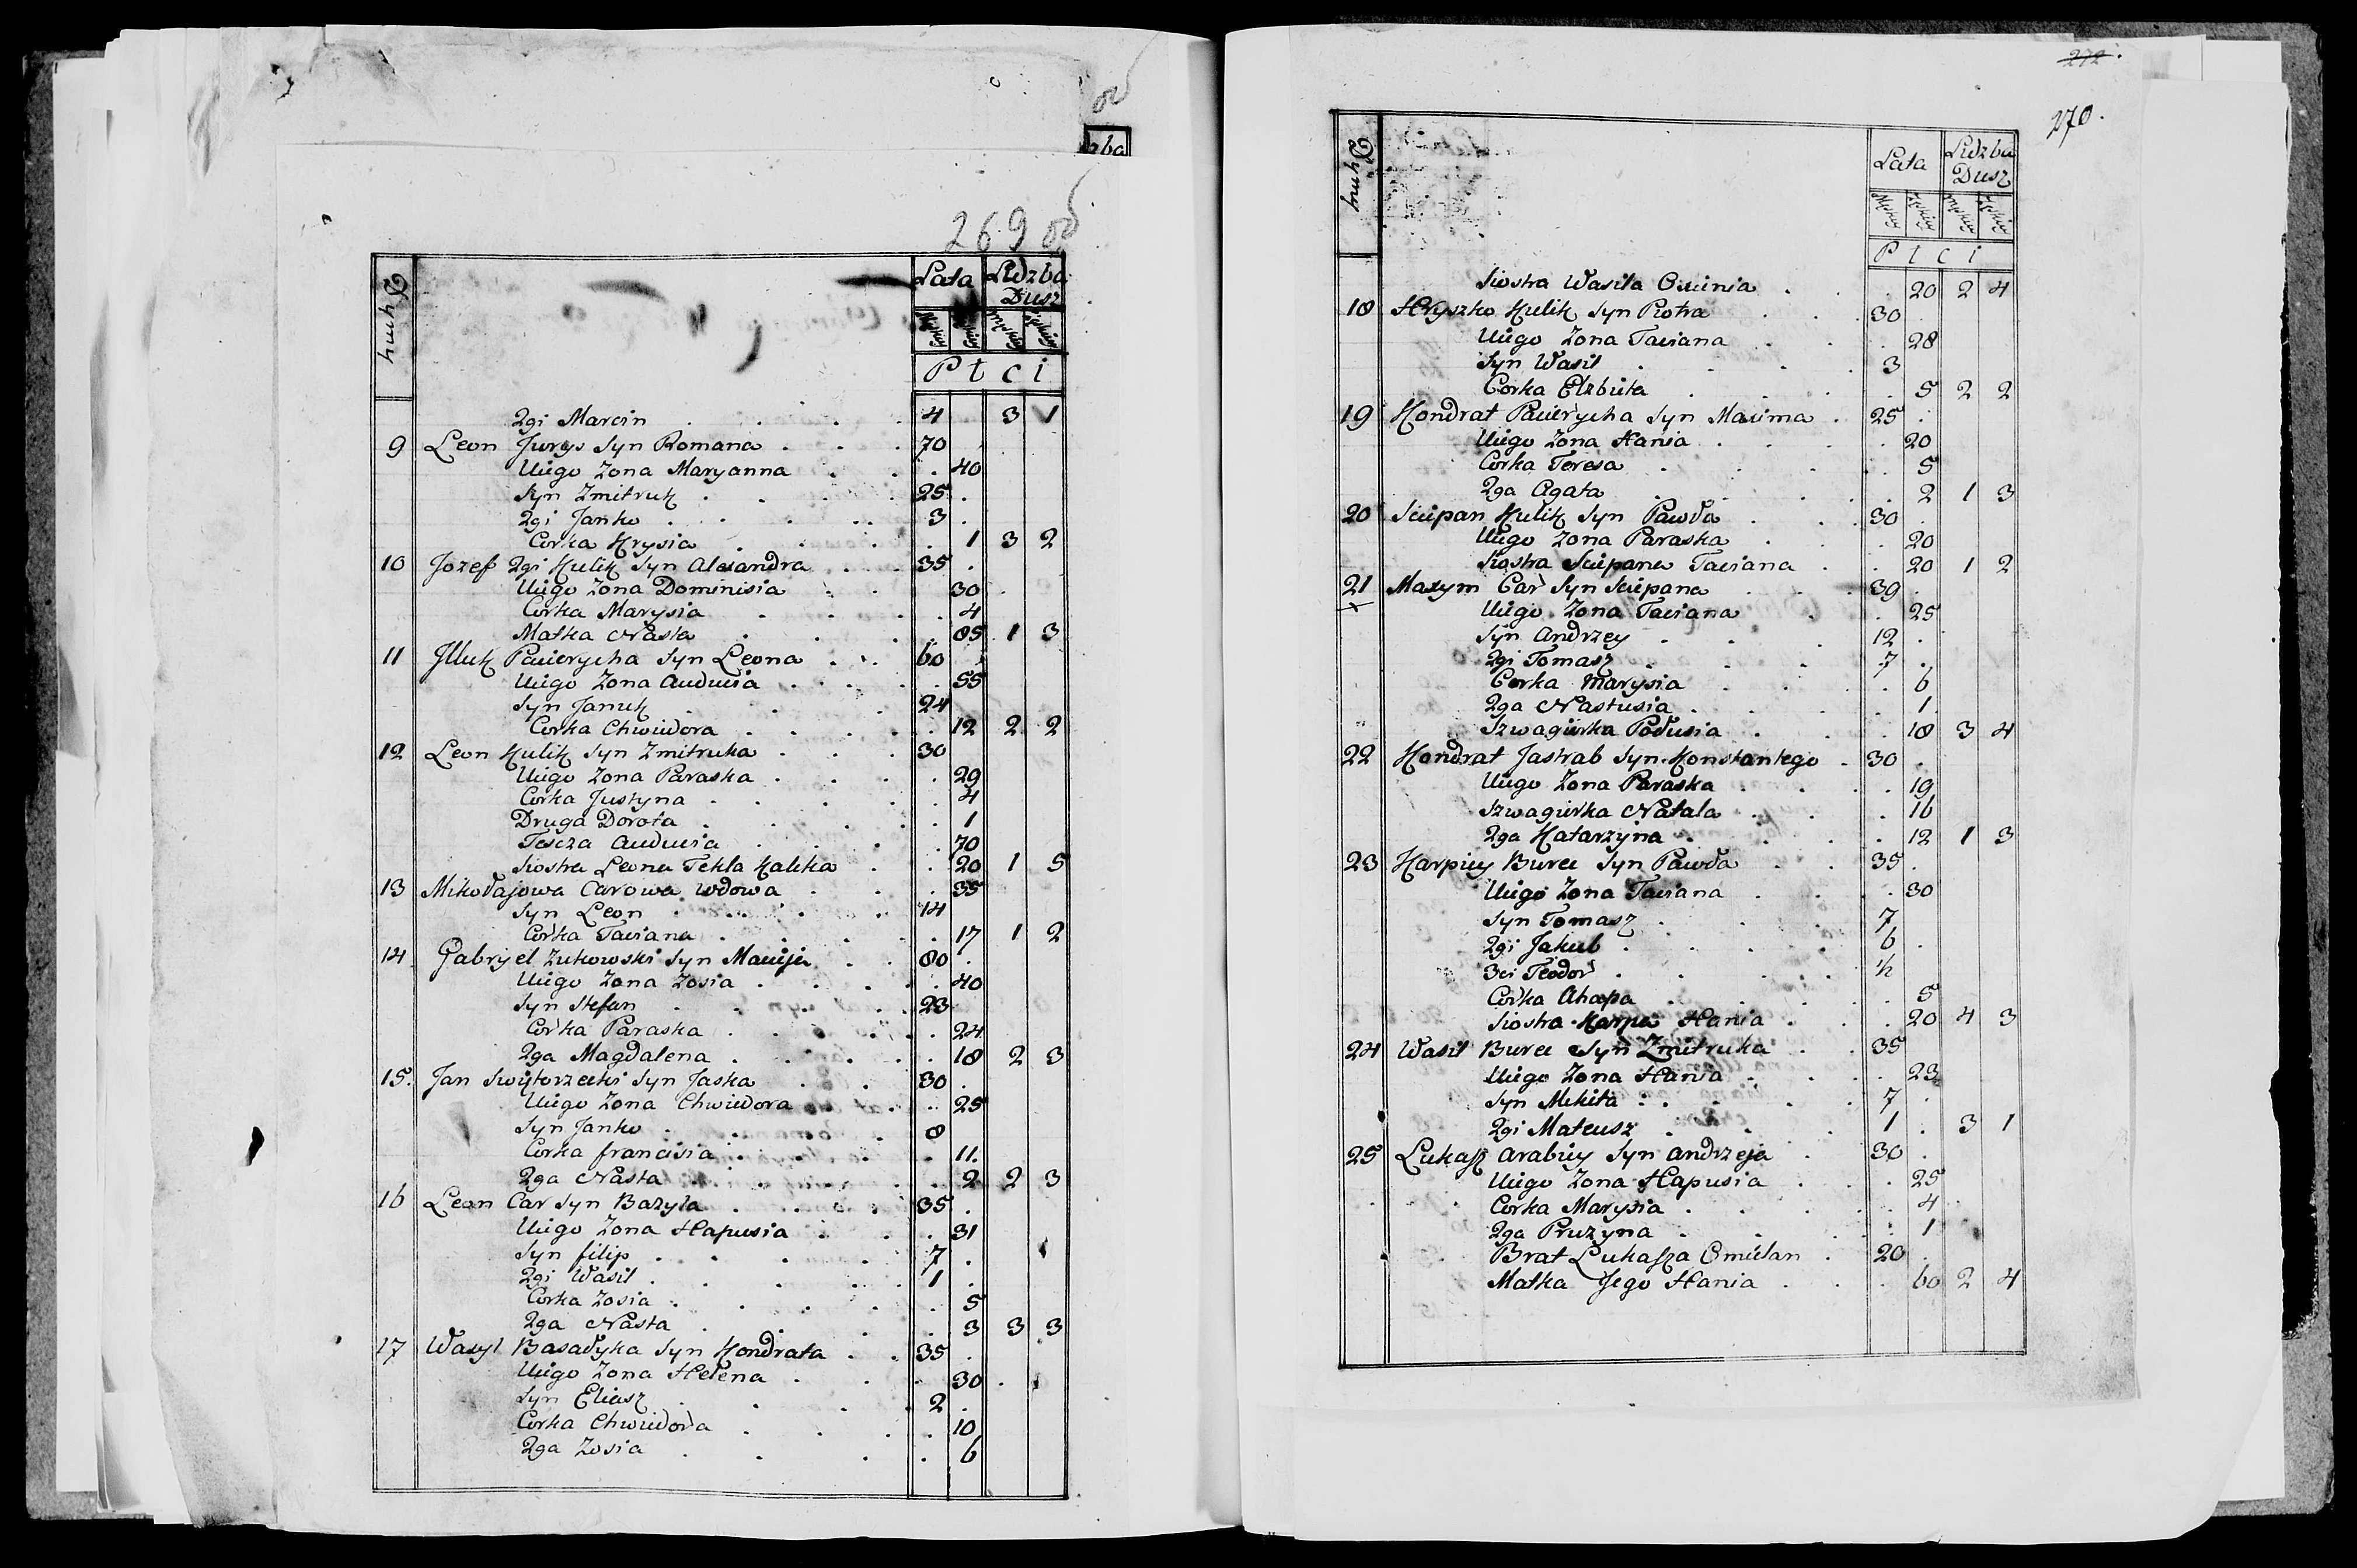 zba
269
Dymy
Lata Liczba
Dusz
P t c i
2gi Marcin 4 3 1
9 Leon Jurys Syn Romana 70
Uiego Zona Maryanna 40
Syn Zmitruk 25
2gi Janko 3
Corka Krysia 1 3 2
10 Jozef 2gi Kulik Syn Alexandra 35
Uiego Zona Dominisia 30
Corka Marysia 4
Matka Nasta 85 1 3
11 Illuk Pacierycha Syn Leona 60
Uiego Zona Auducia 55
Syn Januk 24
Corka Chwiedora 12 2 2
12 Leon Kulik Syn Zmitruka 30
Uiego Zona Paraska 29
Corka Justyna 4
Druga Dorota 1
Tescza Auducia 70
Siostra Leona Tekla Kaleka 20 1 5
13 Mikołajowa Carowa wdowa 35
Syn Leon 14
Corka Taciana 17 1 2
14 Gabryel Zukowski Syn Macieja 80
Uiego Zona Zosia 40
Syn Stefan 23
Corka Paraska 24
2ga Magdalena 18 2 3
15. Jan Swiętorzecki Syn Jaska 30
Uiego Zona Chwiedora 25
Syn Janko 8
Corka francisia 11.
2ga Nasta 2 2 3
16 Leon Car Syn Bazyla 35
Uiego Zona Hapusia 31
Syn filip 7
2gi Wasil 1
Corka Zosia 5
2ga Nasta 3 3 3
17 Wasyl Basałyka Syn Kondrata 35
Uiego Zona Helena 30
Syn Eliasz 2
Corka Chwiedora 10
2ga Zosia 6
272.
270.
Dymy
Lata Liczba
Dusz
P t c i
Siostra Wasila 20 2 4
18 Hryszko Kulik Syn Piotra 30
Uiego Zona Taciana 28
Syn Wasil 3
Corka Elzbieta 5 2 2
19 Kondrat Pacierycha Syn Maxima 25
Uiego Zona Hania 20
Corka Teresa 5
2ga Agata 2 1 3
20 Sciepan Kulik Syn Pawła 30
Uiego Zona Paraska 20
Siostra Sciepana Taciana 20 1 2
21 Maxym Car Syn Sciepana 39
Uiego Zona Taciana 25
Syn Andrzey 12
2gi Tomasz 7
Corka Marysia 6
2ga Nastusia 1
Szwagierka Połusia 18 3 4
22 Kondrat Jastrab Syn Konstantego 30
Uiego Zona Paraska 19
Szwagierka Natala 16
2ga Katarzyna 12 1 3
23 Karpiey Burec Syn Pawła 35
Uiego Zona Taciana 30
Syn Tomasz 7
2gi Jakub 6
3ci Teodor ½
Corka Ahapa 5
Siostra Karpa Hania 20 4 3
24 Wasil Burec Syn Zmitruka 35
Uiego Zona Hania 23
Syn Mikita 7
2gi Mateusz 1 3 1
25 Lukasz Arabiey Syn Andrzeja 30
Uiego Zona Hapusia 25
Corka Marysia 4
2ga Pruzyna 1
Brat Lukasza Omielan 20
Matka Jego Hania 60 2 4